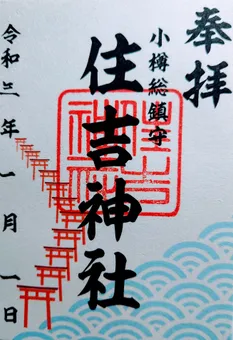 奉拝
小樽総鎮守
住吉神社
令和三年一月一日